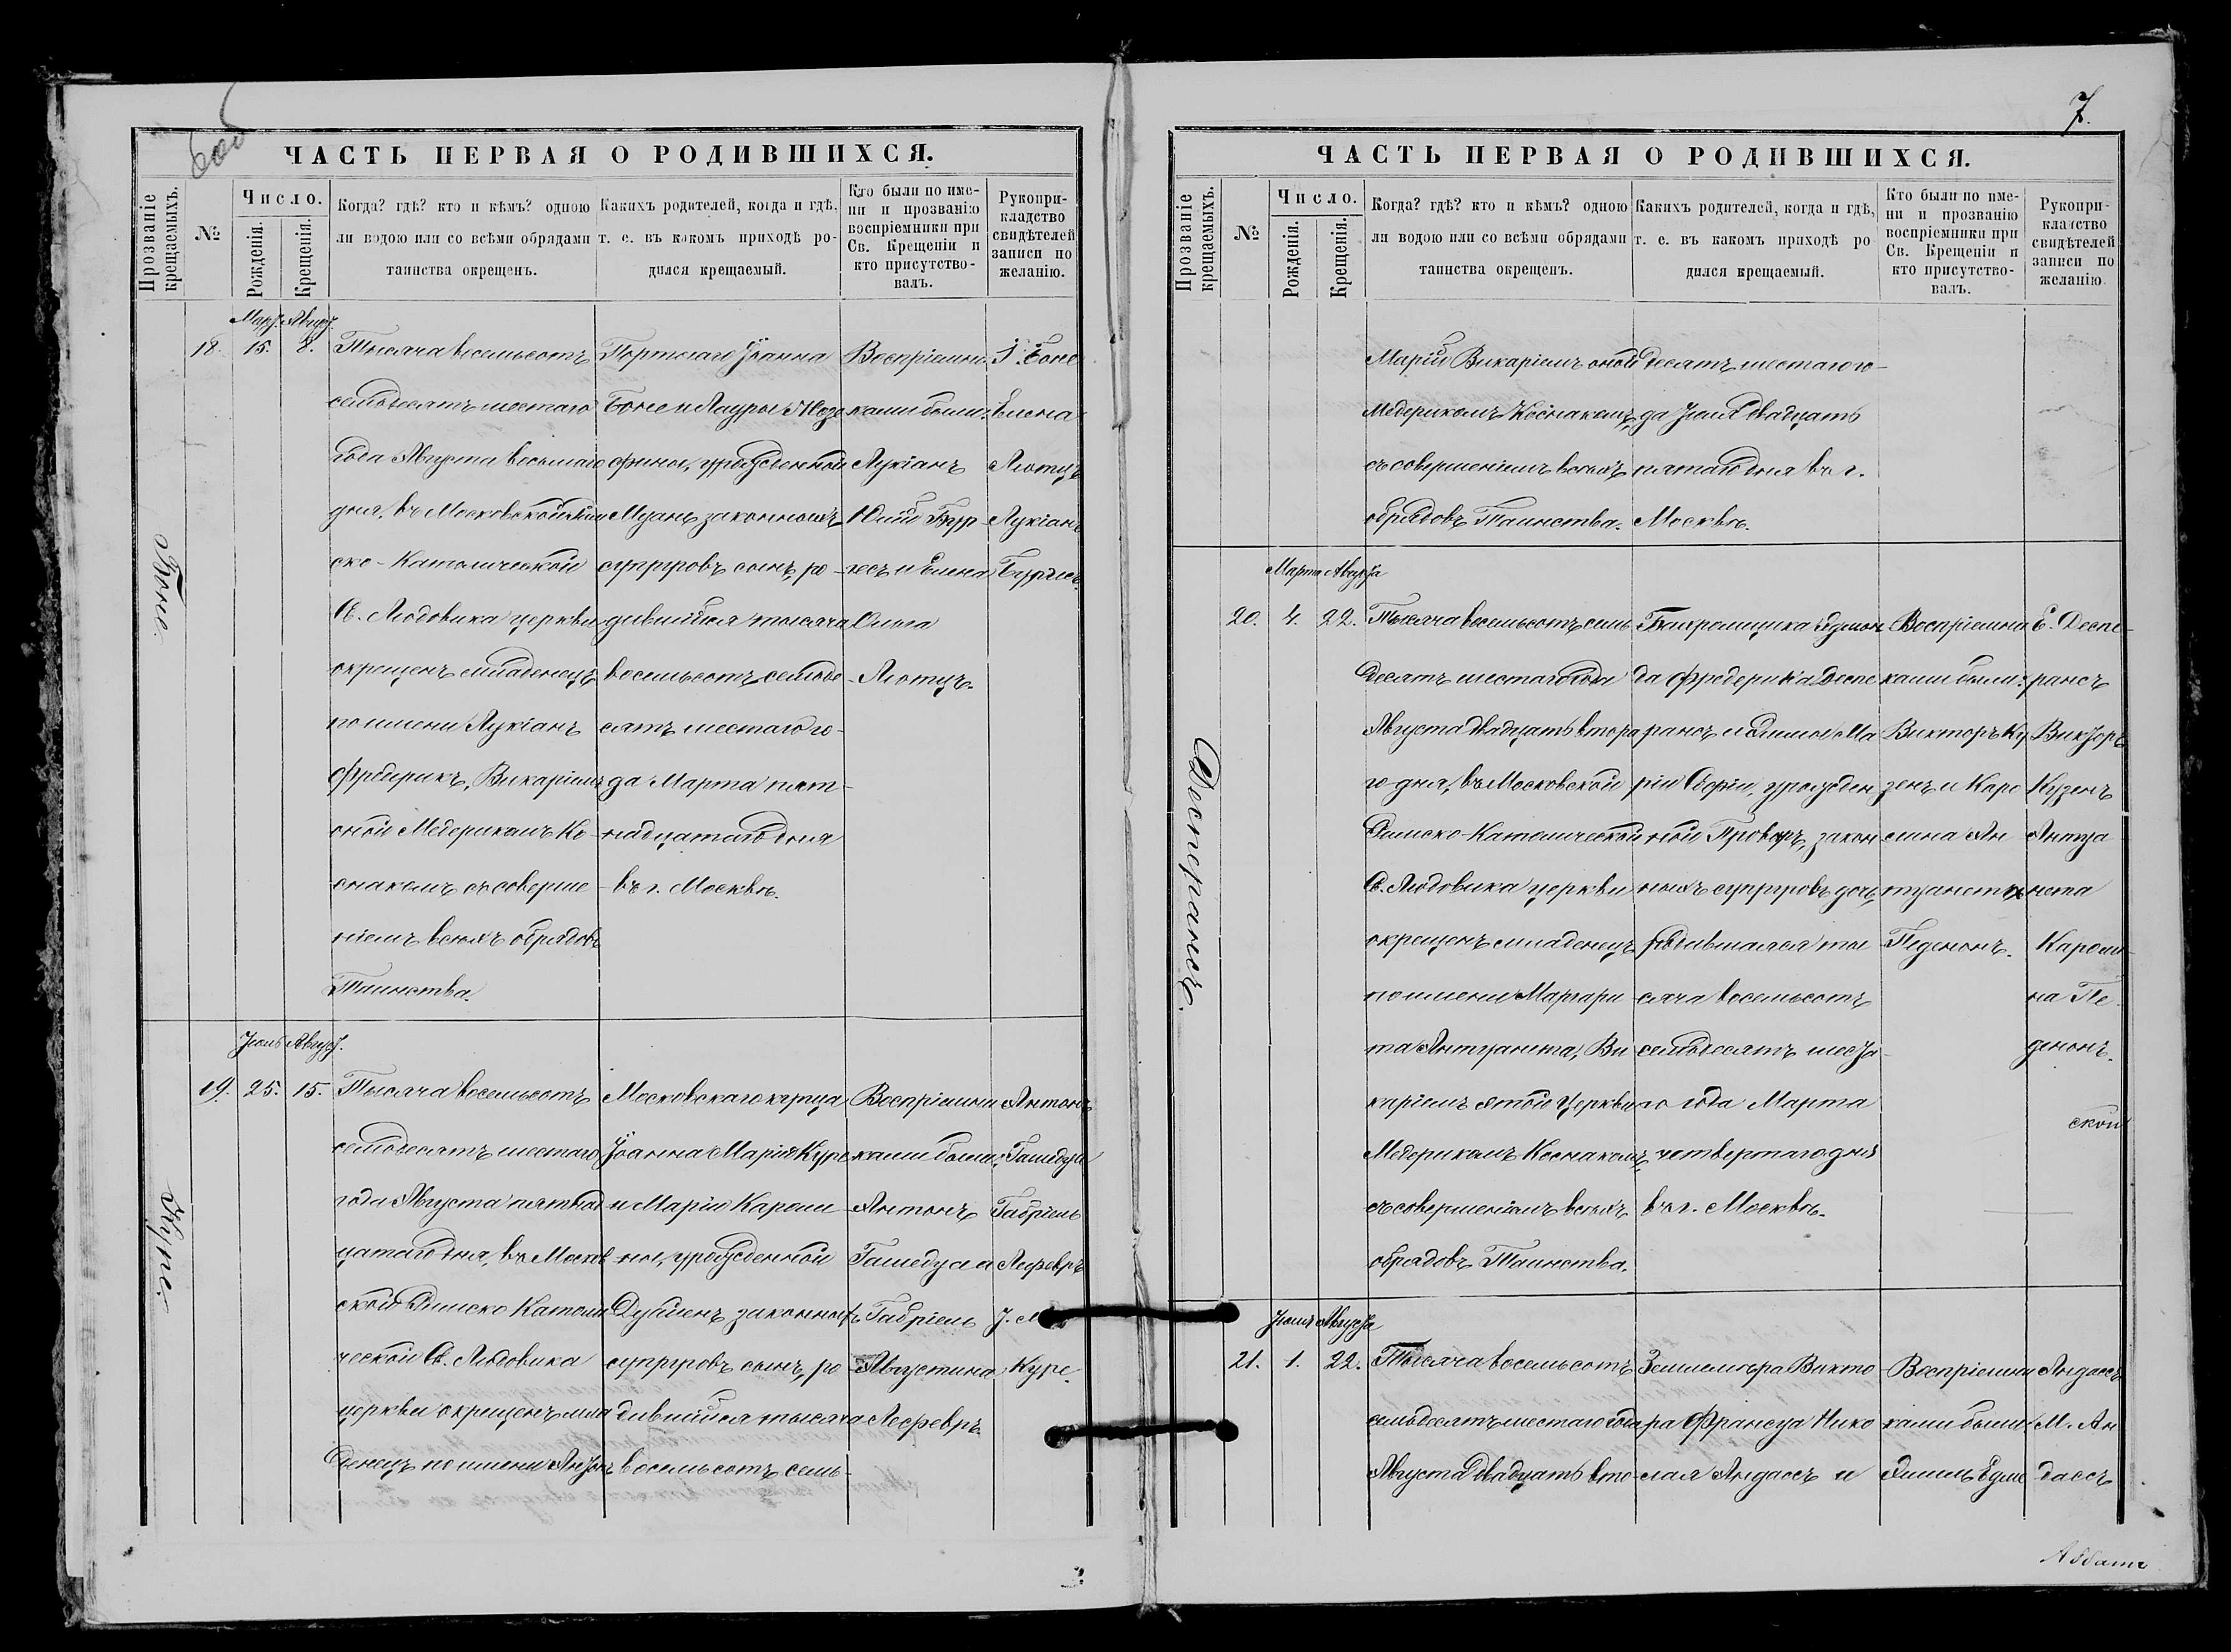 6 об
ЧАСТЬ ПЕРВАЯ О РОДИВШИХСЯ.
Прозваніе крещаемыхъ.
№
Число.
Рожденія.
Крещенія.
Когда? гдѣ? кто и кѣмъ? одною
ли водою или со всѣми обрядами
таинства окрещенъ.
Какихъ родителей, когда и гдѣ,
т. е. въ какомъ приходѣ ро-
дился крещаемый.
Кто были по име-
ни и прозванію
воспріемники при
Св. Крещеніи и
кто присутство-
валъ.
Рукопри-
кладство
свидѣтелей
записи по
желанію.
Боне.
Март. Август.
18. 15. 8.
Тысяча восемьсотъ
семьдесятъ шестаго
года Августа восьмаго
дня, въ Московской Рим
ско-Католической
Св. Людовика церкви
окрещенъ младенецъ
по имени Лукіанъ
Фридрихъ, Викаріемъ
оной Медерикомъ Ко-
снакомъ съ соверше-
ніемъ всѣхъ обрядовъ
Таинства.
Портнаго Іоанна
Боне и Лауры Жозе
фины, урожденной
Музанъ законныхъ
супруговъ сынъ, ро-
дившійся тысяча
восемьсотъ семьде-
сятъ шестаго го-
да Марта пят-
надцатаго дня
въ г. Москвѣ.
Воспріемни
ками были:
Лукіанъ
Юлій Бур
гесъ и Елена
Ольга
Лютцъ.
І. Боне
Елена
Лютцъ
Лукіанъ
Бургесъ
Куре.
Іюль Август.
19. 25. 15.
Тысяча восемьсотъ
семьдесятъ шестаго
года Августа пятнад
цатаго дня, въ Москов
ской Римско Католи
ческой Св. Людовика
церкви окрещенъ мла
денецъ по имени Антонъ
Московскаго купца
Іоанна Марія Куре
и Маріи Кароли
ны, урожденной
Дуйенъ законныхъ
супруговъ сынъ, ро-
дившійся тысяча
восемьсотъ семь-
Воспріемни
ками были:
Антонъ
Гашедуа и
Габріель
Августина
Лефевръ.
Антонъ
Гашедуа
Габріель
Лефевръ
І. М.
Куре.
7.
ЧАСТЬ ПЕРВАЯ О РОДИВШИХСЯ.
Прозваніе крещаемыхъ.
№
Число.
Рожденія.
Крещенія.
Когда? гдѣ? кто и кѣмъ? одною
ли водою или со всѣми обрядами
таинства окрещенъ.
Какихъ родителей, когда и гдѣ,
т. е. въ какомъ приходѣ ро
дился крещаемый.
Кто были по име-
ни и прозванію
воспріемники при
Св. Крещеніи и
кто присутство-
валъ.
Рукопри-
кладство
свидѣтелей
записи по
желанію.
Марій Викаріемъ оной
Медерикомъ Коснакомъ,
съ совершеніемъ всѣхъ
обрядовъ Таинства.
десятъ шестаго го-
да Іюля двадцать
пятаго дня въ г.
Москвѣ.
Десперансъ.
Марта Августа
20. 4. 22.
Тысяча восемьсотъ семь
десятъ шестаго года
Августа двадцать втора
го дня, въ Московской
Римско-Католической
Св. Людовика церкви
окрещенъ младенецъ
по имени Маргари
та Антуанета, Ви
каріемъ этой церкви
Медерикомъ Коснакомъ
съ совершеніемъ всѣхъ
обрядовъ Таинства.
да Фредерика Деспе
рансъ и Эмиліи Ма
ріи Софіи, урожден
ной Проворъ, закон
ныхъ супруговъ дочь
родившаяся ты
сяча восемьсотъ
семьдесятъ шеста-
го года Марта
четвертаго дня
въ г. Москвѣ.
Воспріемни
ками были:
Викторъ Ку
зенъ и Каро
лина Ан
туанета
Педенонъ.
Е. Деспе-
рансъ
Викторъ
Кузенъ
Антуа
нета
Кароли-
на Пе
денонъ.
ской
Іюля Августа
21. 1. 22.
Тысяча восемьсотъ
семьдесятъ шестаго года
Августа двадцать вто-
Землемѣра Викто
ра Франсуа Нико
лая Андассъ и
Воспріемни
ками были:
Эмиль
Андассъ
М. Ан
дассъ
Аббатъ